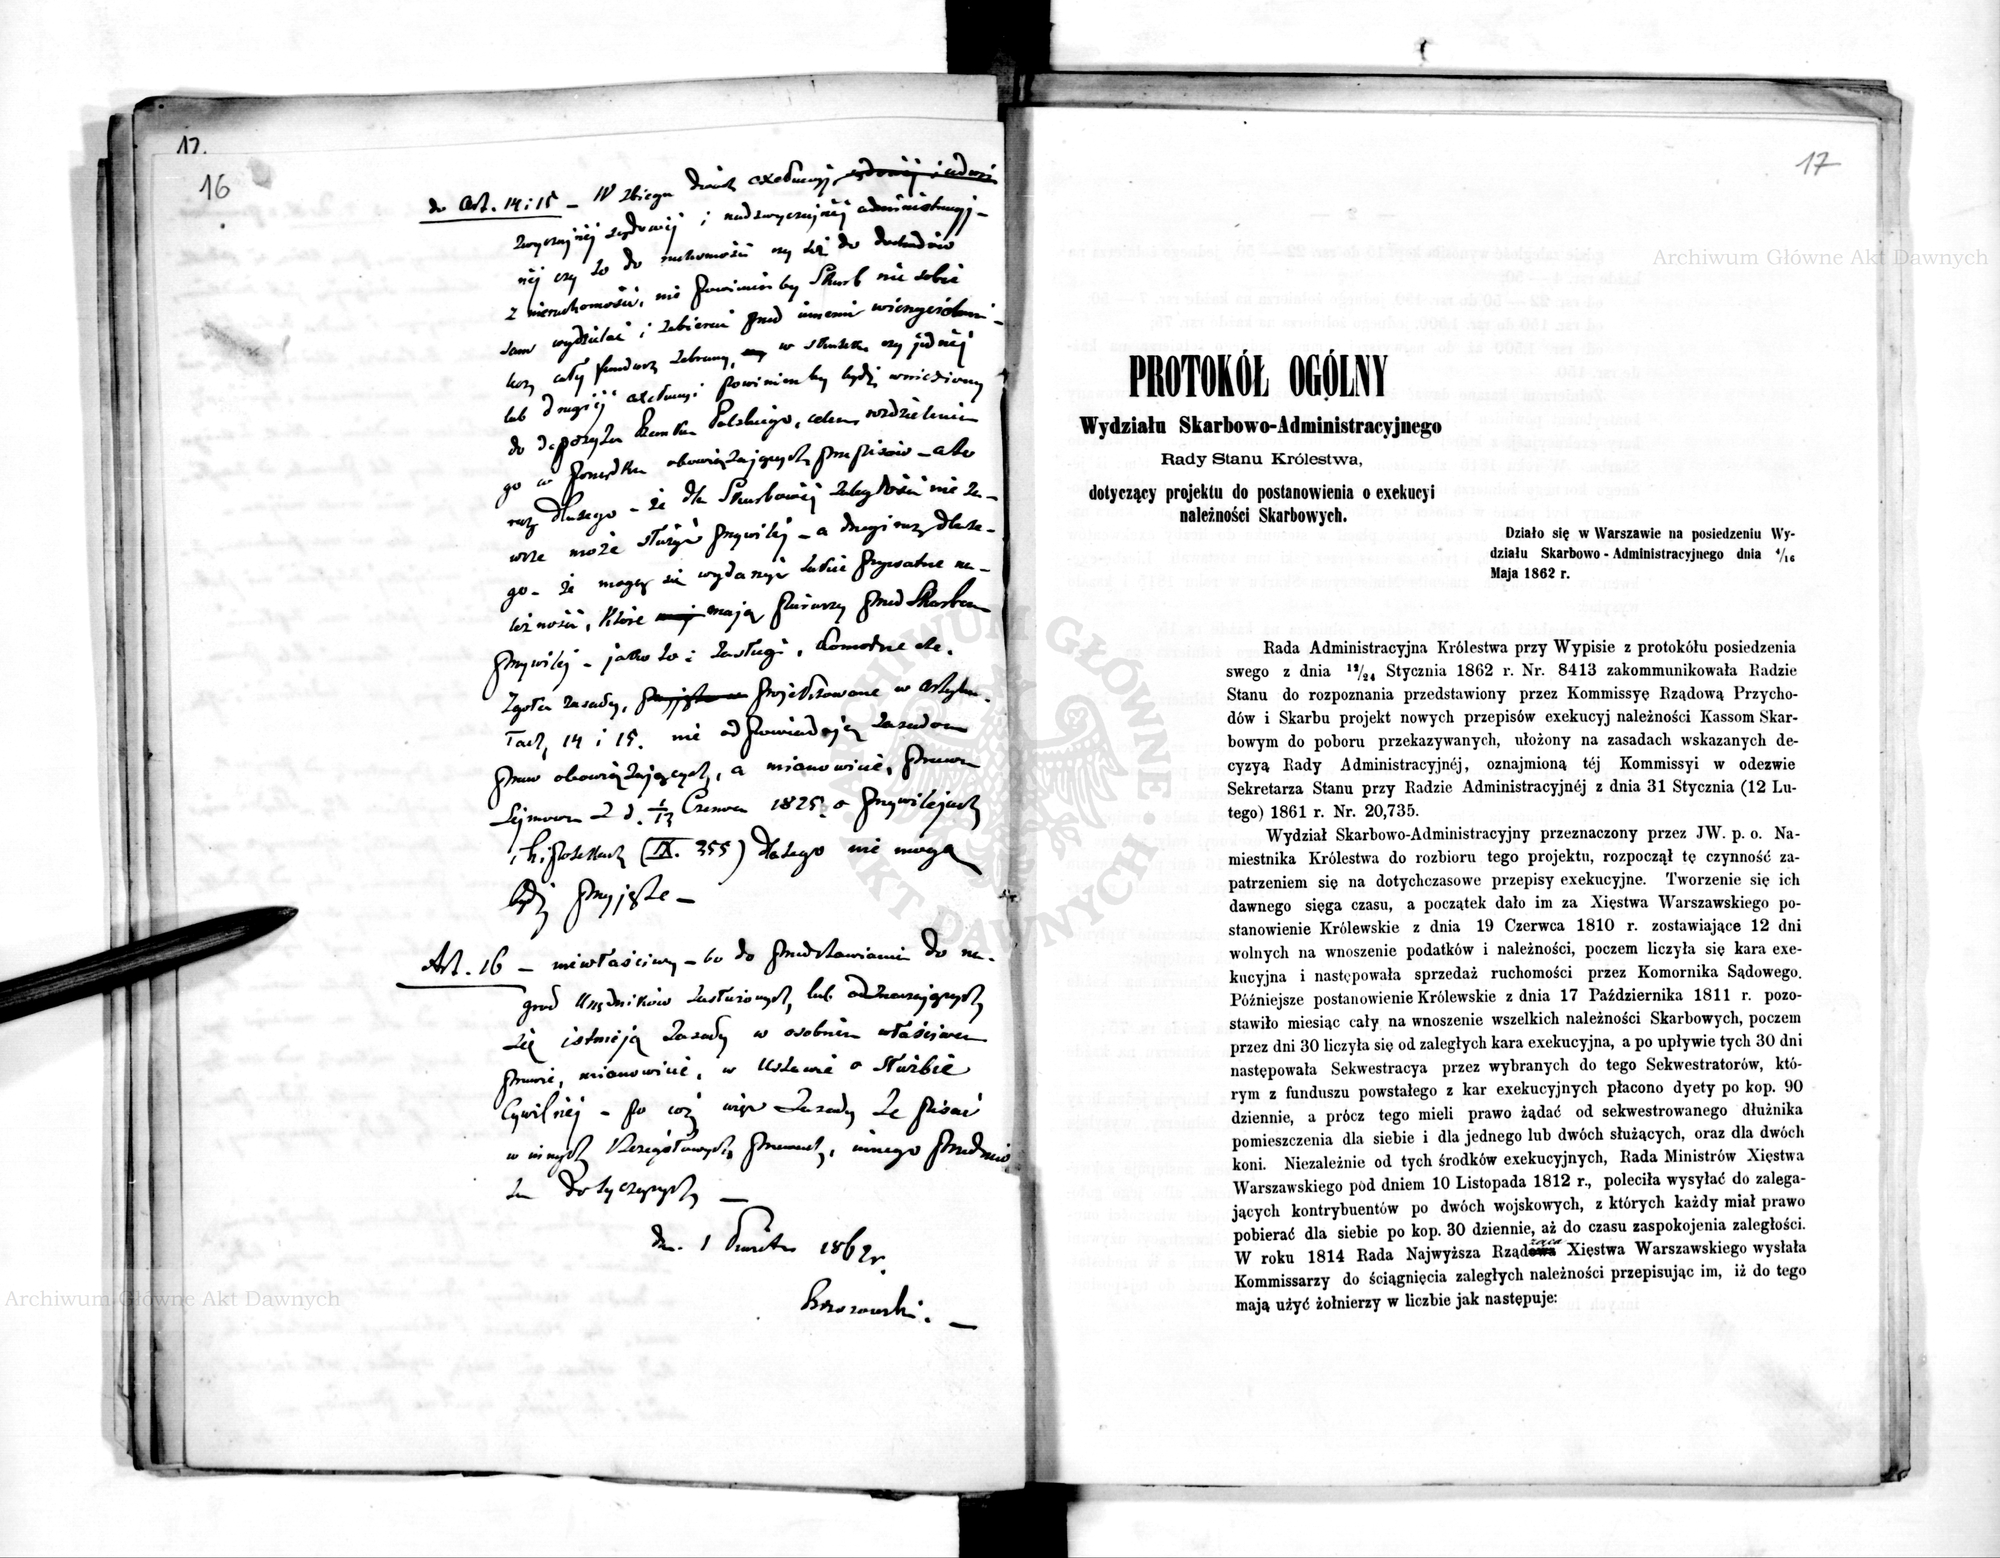 17.
16
do Art. 14 i 15 – W zbiegu dwóch exekucyj
zwyczajnéj sądowéj i nadzwyczajnéj administracyj-
néj czy to do ruchomości czy też do dochodów
z nieruchomości, nie powinien by Skarb sobie
sam wydzielać i zabierać przed innemi wierzycielami –
lecz cały fundusz zebrany, w skutek czy jednéj
lub drugiéj exekucyi powinien by bydź wniesiony
do depozytu Banku Polskiego, celem rozdzielenia
go w porządku obowiązujących przepisów – a to
raz dlatego – że dla Skarbowéj zaległości nie za-
wsze może służyć przywiléj – a drugi raz dlate-
go – że mogą się wydarzyć takie prywatne na-
leżności, które mają pierwszy przed Skarbem
przywiléj – jako to: zasługi, komorne etc.
Zgoła zasady, projektowane w artyku-
łach 14 i 15. nie odpowiadają zasadom
praw obowiązujących, a mianowicie, prawu
Sejmowemu z d. 1/13 Czerwca 1825 o przywilejach
i hipotekach (IX. 355) dlatego nie mogą
bydź przyjęte –
Art. 16 – niewłaściwy – bo do przedstawiania do na-
gród Urzędników zasłużonych lub odznaczających
się istnieją zasady w osobnem właściwem
prawie, mianowicie, w Ustawie o służbie
Cywilnéj – po cóż więc zasady te pisać
w innych szczegółowych prawach, innego przedmio
tu dotyczących –
dn. 1 Kwietn 1862 r.
Brzozowski. –
17
Archiwum Główne Akt Dawnych
PROTOKÓŁ OGÓLNY
Wydziału Skarbowo-Administracyjnego
Rady Stanu Królestwa,
dotyczący projektu do postanowienia o exekucyi
należności Skarbowych.
Działo się w Warszawie na posiedzeniu Wy-
działu Skarbowo-Administracyjnego dnia 4/16
Maja 1862 r.
Rada Administracyjna Królestwa przy Wypisie z protokółu posiedzenia
swego z dnia 12/24 Stycznia 1862 r. Nr. 8413 zakommunikowała Radzie
Stanu do rozpoznania przedstawiony przez Kommissyę Rządową Przycho-
dów i Skarbu projekt nowych przepisów exekucyj należności Kassom Skar-
bowym do poboru przekazywanych, ułożony na zasadach wskazanych de-
cyzyą Rady Administracyjnéj, oznajmioną téj Kommissyi w odezwie
Sekretarza Stanu przy Radzie Administracyjnéj z dnia 31 Stycznia (12 Lu-
tego) 1861 r. Nr. 20,735.
Wydział Skarbowo-Administracyjny przeznaczony przez JW. p. o. Na-
miestnika Królestwa do rozbioru tego projektu, rozpoczął tę czynność za-
patrzeniem się na dotychczasowe przepisy exekucyjne. Tworzenie się ich
dawnego sięga czasu, a początek dało im za Xięstwa Warszawskiego po-
stanowienie Królewskie z dnia 19 Czerwca 1810 r. zostawiające 12 dni
wolnych na wnoszenie podatków i należności, poczem liczyła się kara exe-
kucyjna i następowała sprzedaż ruchomości przez Komornika Sądowego.
Późniejsze postanowienie Królewskie z dnia 17 Października 1811 r. pozo-
stawiło miesiąc cały na wnoszenie wszelkich należności Skarbowych, poczem
przez dni 30 liczyła się od zaległych kara exekucyjna, a po upływie tych 30 dni
następowała Sekwestracya przez wybranych do tego Sekwestratorów, któ-
rym z funduszu powstałego z kar exekucyjnych płacono dyety po kop. 90
dziennie, a prócz tego mieli prawo żądać od sekwestrowanego dłużnika
pomieszczenia dla siebie i dla jednego lub dwóch służących, oraz dla dwóch
koni. Niezależnie od tych środków exekucyjnych, Rada Ministrów Xięstwa
Warszawskiego pod dniem 10 Listopada 1812 r., poleciła wysyłać do zalega-
jących kontrybuentów po dwóch wojskowych, z których każdy miał prawo
pobierać dla siebie po kop. 30 dziennie, aż do czasu zaspokojenia zaległości.
W roku 1814 Rada Najwyższa Rządząca Xięstwa Warszawskiego wysłała
Kommissarzy do ściągnięcia zaległych należności przepisując im, iż do tego
mają użyć żołnierzy w liczbie jak następuje:
Archiwum Główne Akt Dawnych
ARCHIWUM GŁÓWNE AKT DAWNYCH